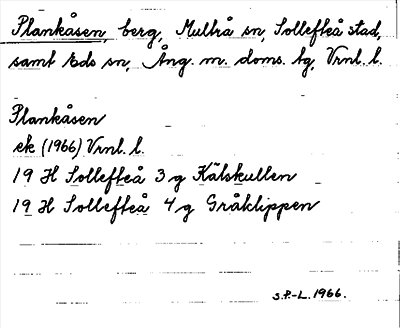 Plankåsen, berg, Multrå sn, Sollefteå stad,
samt Eds sn, Ång. m. doms. tg, Vrnl. l.
Plankåsen
ek (1966) Vrnl. l.
19 H Sollefteå 3 g Kälskullen
19 H Sollefteå 4 g Gråklippen
S.P.-L. 1966.